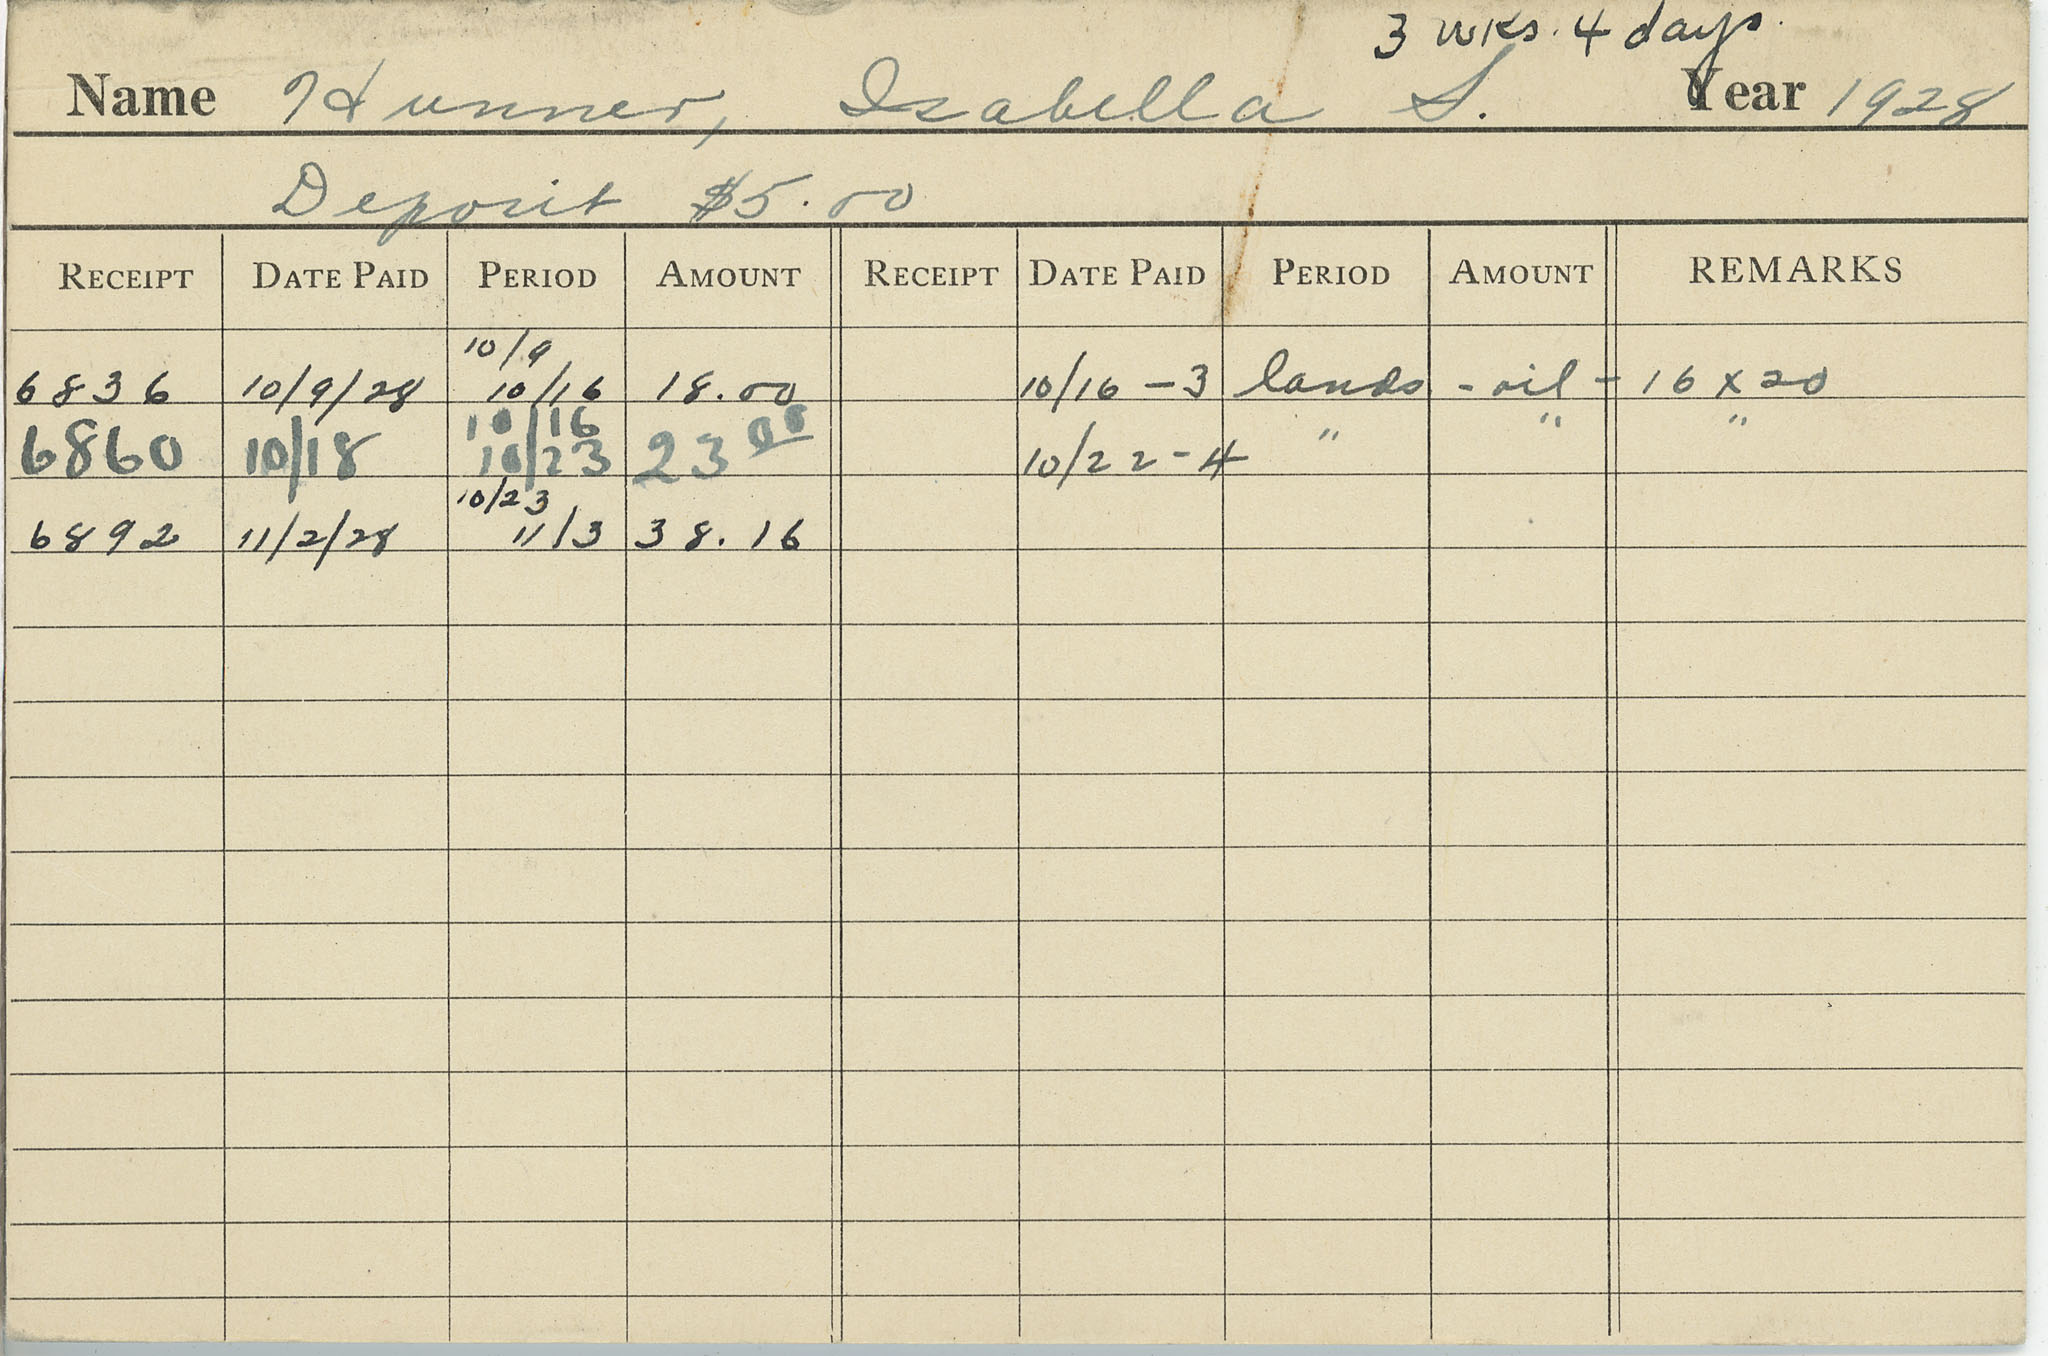 3 wks. 4 days.
Name Hunner, Isabella S. Year 1928
Deposit $5.00
RECEIPT DATE PAID PERIOD AMOUNT RECEIPT DATE PAID PERIOD AMOUNT REMARKS
10/9
6836 10/9/28 10/16 18.00 10/16 - 3 lands - oil - 16 x 20
10/16
6860 10/18 10/23 23 00 10/22 - 4 " " "
10/23
6892 11/2/28 11/3 38.16